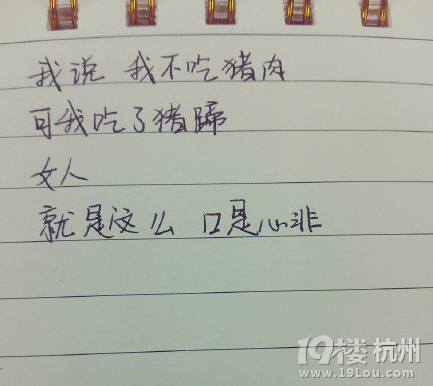 我说 我不吃猪肉
可我吃了猪蹄
女人
就是这么 口是心非
19楼杭州
www.19lou.com